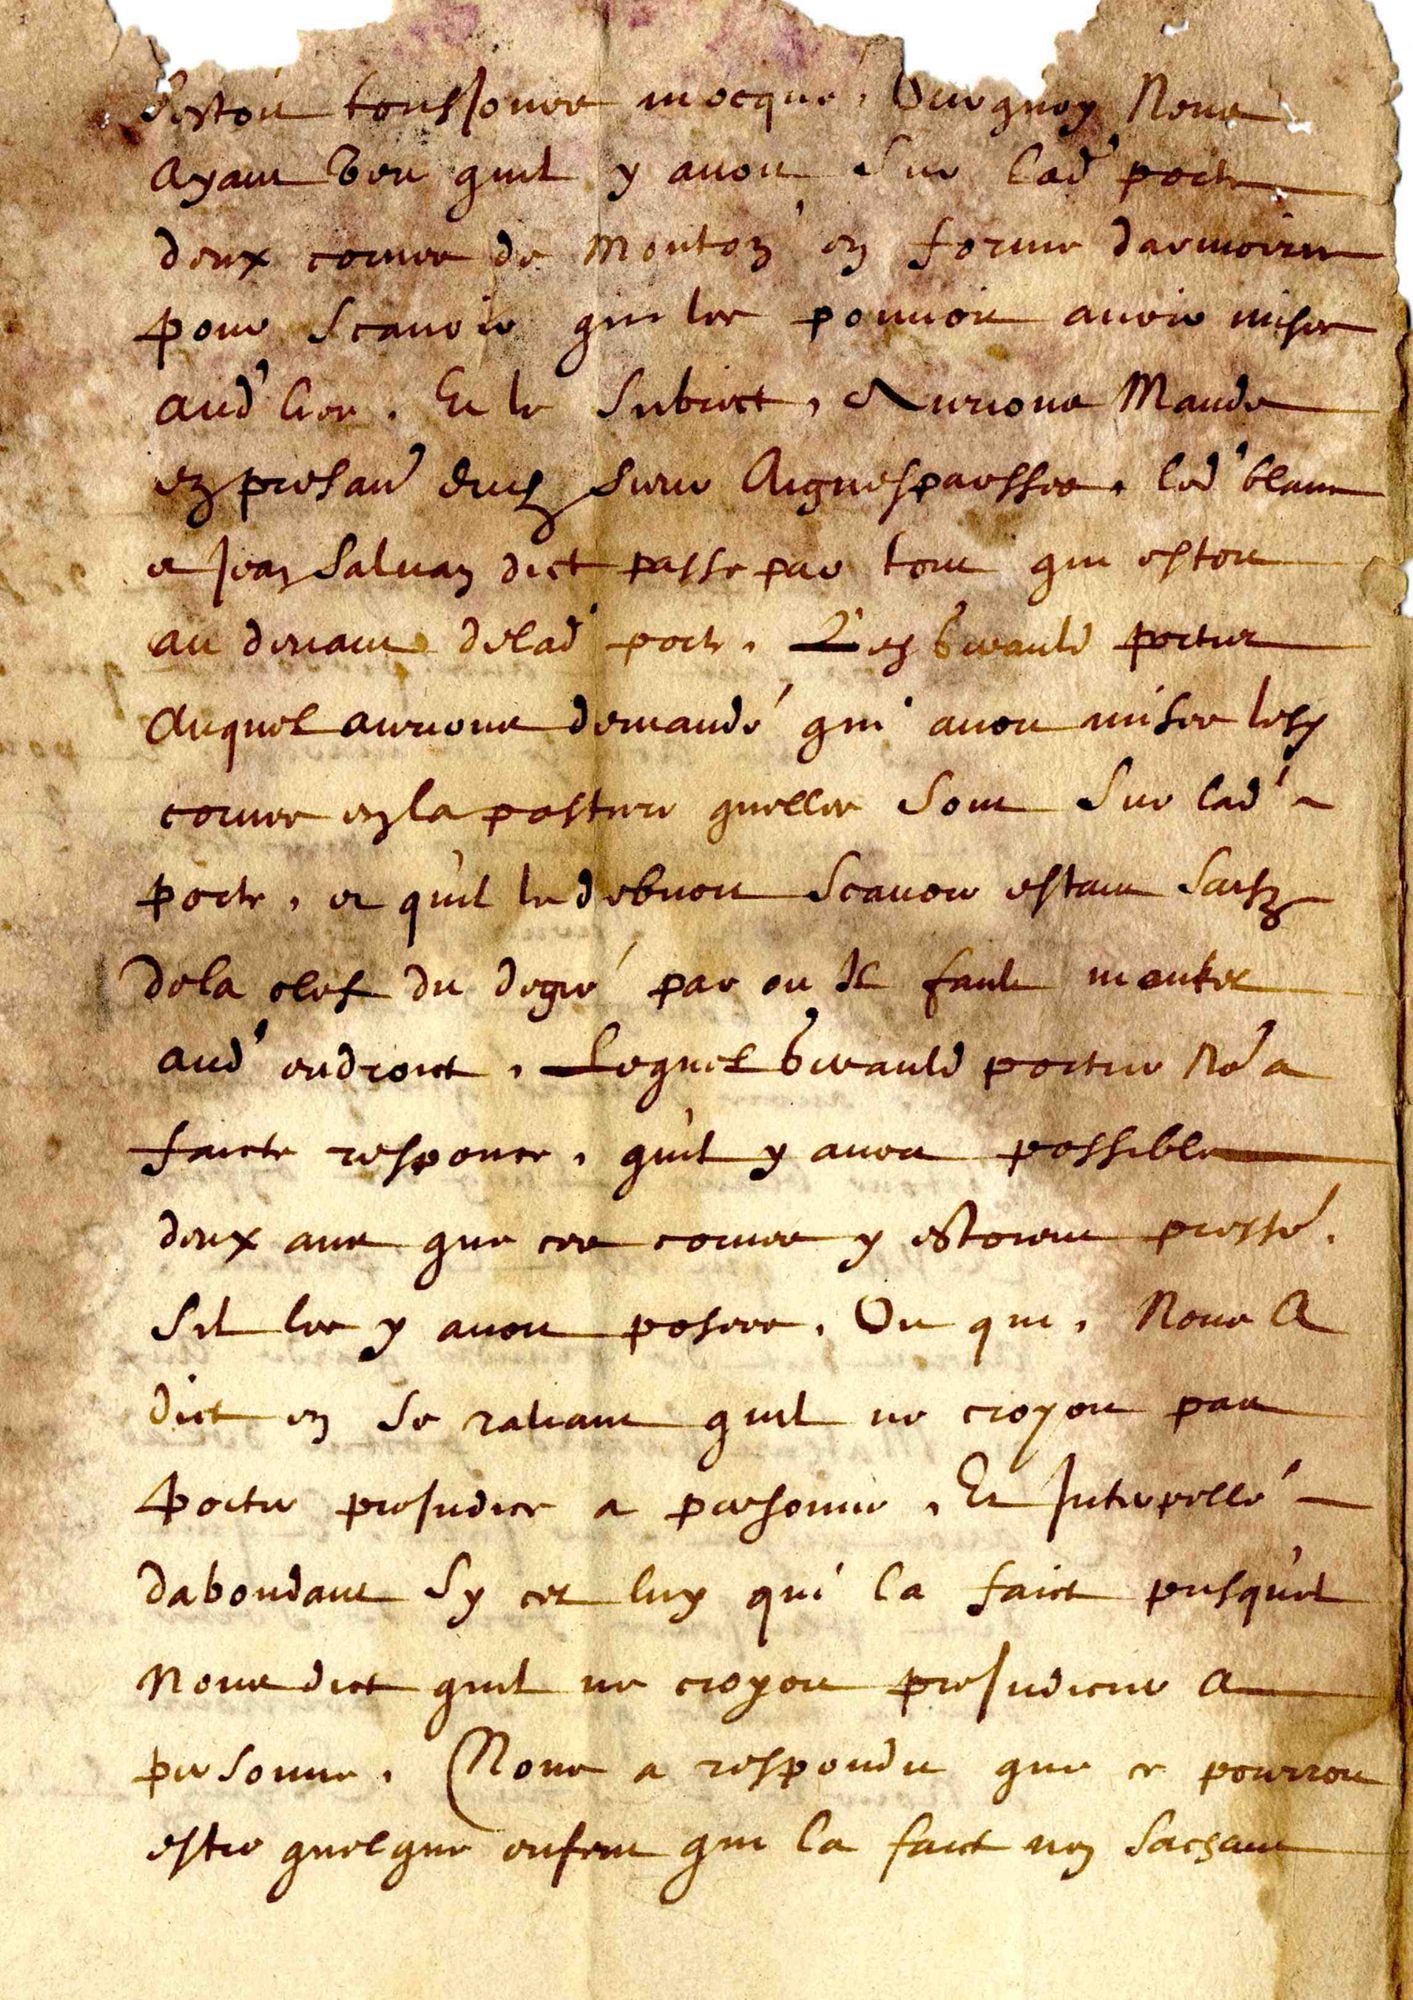 sestoit tousjours mocqué, Surquoy Nous
ayant veu quil y avoit sur lad' porte
deux cornes de mouton en forme darmoirie
pour scavoir qui les pouvoit avoir mises
aud' lieu. Et le subiect, Aurions Mandé
en presance dud sieur Aiguesparsses, led' blanc
et Jean Salvan dict passe par tout qui estoit
au devant delad' porte. Ledit portier
Auquel aurions demandé qui avoit mises lesd
cornes en la posture quelles sont sur lad'
porte, et quil le debvoit scavoir estant saisy
dela clef du degré par ou Il fault monter
aud' endroict, Lequel portier No' a
faicte responce, quil y avoit possible
deux ans que ces cornes y estoient presse.
Sil les y avoit posees, Ou qui, Nous A
dict en se rahant quil ne croyoit pas
porter prejudice a personne, Et Interpellé
dabondant sy cet luy qui la faict puisquil
Nous dict quil ne croyoit prejudicier A
personne. Nous a respondu que ce pourroit
estre quelque enfent qui la faict nen sachant